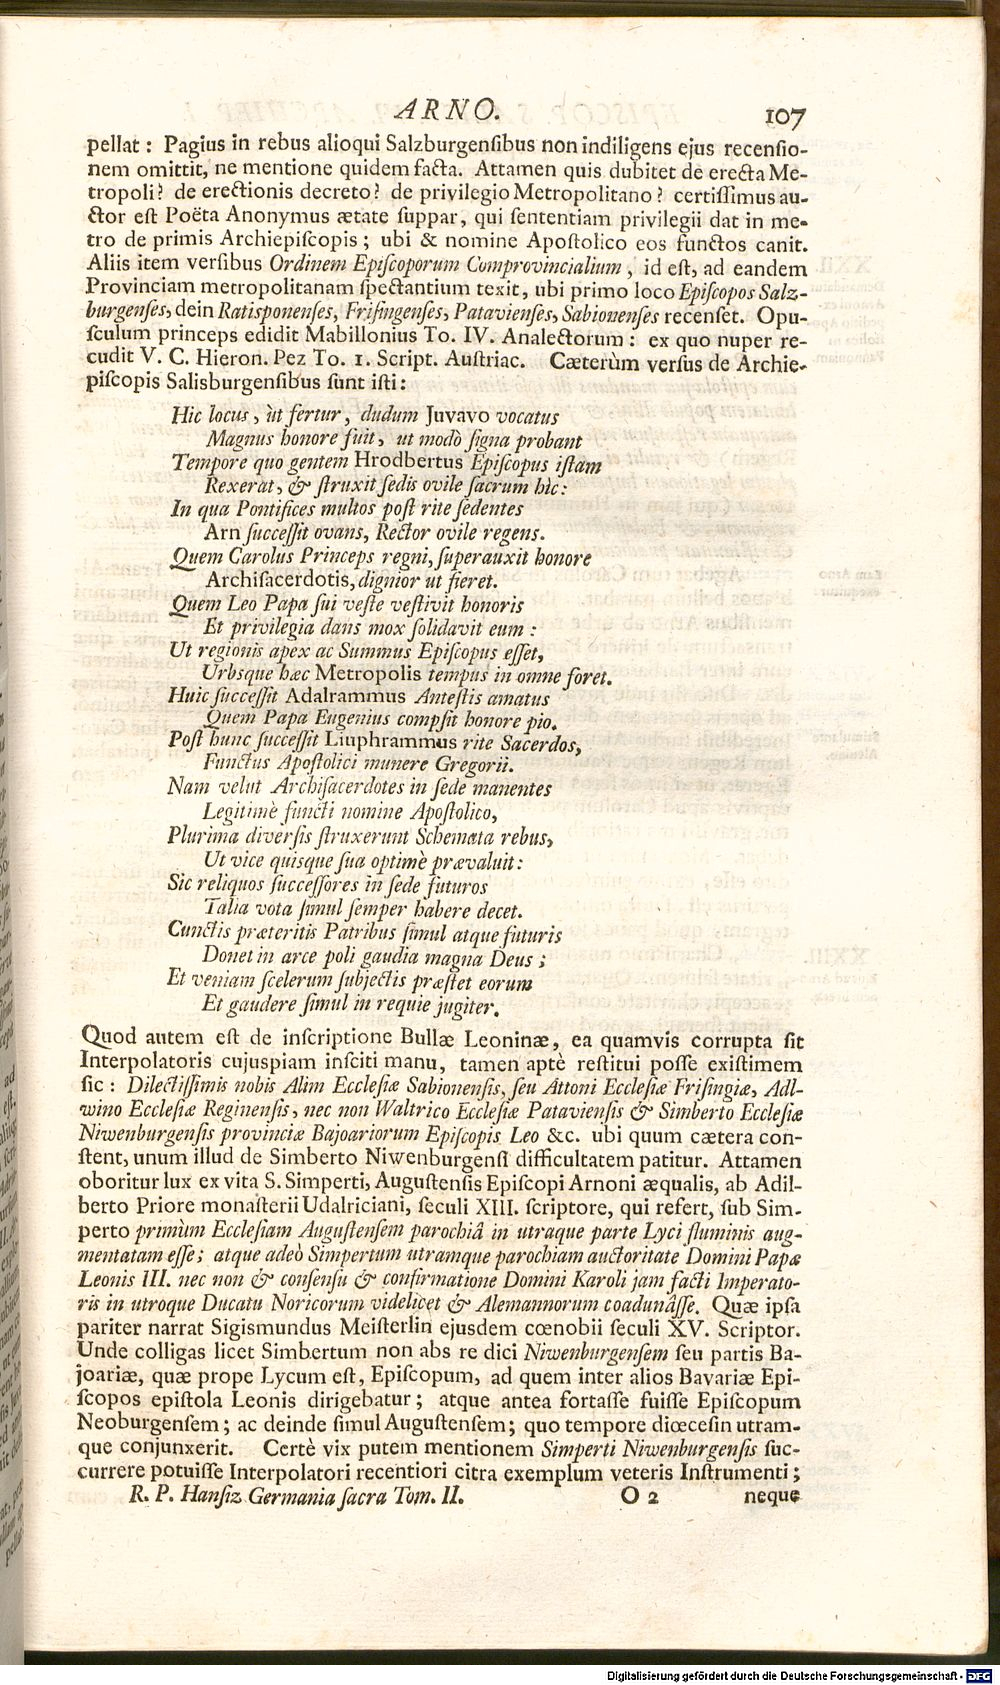 ARNO. 107
pellat : Pagius in rebus alioqui Salzburgenſibus non indiligens ejus recenſio-
nem omittit, ne mentione quidem facta. Attamen quis dubitet de erecta Me-
tropoli? de erectionis decreto? de privilegio Metropolitano? certiſſimus au-
ctor eſt Poëta Anonymus ætate ſuppar, qui ſententiam privilegii dat in me-
tro de primis Archiepiſcopis; ubi & nomine Apoſtolico eos functos canit.
Aliis item verſibus Ordinem Epiſcoporum Comprovincialium, id eſt, ad eandem
Provinciam metropolitanam ſpectantium texit, ubi primo loco Epiſcopos Salz-
burgenſes, dein Ratisponenſes, Friſingenſes, Patavienſes, Sabionenſes recenſet. Opu-
ſculum princeps edidit Mabillonius To. IV. Analectorum: ex quo nuper re-
cudit V. C. Hieron. Pez To. 1. Script. Auſtriac. Cæterùm verſus de Archie-
piſcopis Salisburgenſibus ſunt iſti:
Hic locus, ùt fertur, dudum Juvavo vocatus
Magnus honore fuit, ut modò ſigna probant
Tempore quo gentem Hrodbertus Epiſcopus iſtam
Rexerat, & ſtruxit ſedis ovile ſacrum hîc:
In qua Pontifices multos poſt rite ſedentes
Arn ſucceſſit ovans, Rector ovile regens.
Quem Carolus Princeps regni, ſuperauxit honore
Archiſacerdotis, dignior ut fieret.
Quem Leo Papa ſui veſte veſtivit honoris
Et privilegia dans mox ſolidavit eum :
Ut regionis apex ac Summus Epiſcopus eſſet,
Urbsque hæc Metropolis tempus in omne foret.
Huic ſucceſſit Adalrammus Anteſtis amatus
Quem Papa Eugenius compſit honore pio.
Poſt hunc ſucceſſit Liuphrammus rite Sacerdos,
Functus Apoſtolici munere Gregorii.
Nam velut Archiſacerdotes in ſede manentes
Legitimè functi nomine Apoſtolico,
Plurima diverſis ſtruxerunt Schemata rebus,
Ut vice quisque ſua optimè prævaluit:
Sic reliquos ſucceſſores in ſede futuros
Talia vota ſimul ſemper habere decet.
Cunctis præteritis Patribus ſimul atque futuris
Donet in arce poli gaudia magna Deus ;
Et veniam ſcelerum ſubjectis præſtet eorum
Et gaudere ſimul in requie jugiter.
Quod autem eſt de inſcriptione Bullæ Leoninæ, ea quamvis corrupta ſit
Interpolatoris cujuspiam inſciti manu, tamen aptè reſtitui poſſe exiſtimem
ſic : Dilectiſſimis nobis Alim Eccleſiæ Sabionenſis, ſeu Attoni Eccleſiæ Friſingiæ, Adl-
wino Eccleſiæ Reginenſis, nec non Waltrico Eccleſiæ Patavienſis & Simberto Eccleſiæ
Niwenburgenſis provinciæ Bajoariorum Epiſcopis Leo &c. ubi quum cætera con-
ſtent, unum illud de Simberto Niwenburgenſi difficultatem patitur. Attamen
oboritur lux ex vita S. Simperti, Auguſtenſis Epiſcopi Arnoni æqualis, ab Adil-
berto Priore monaſterii Udalriciani, ſeculi XIII. ſcriptore, qui refert, ſub Sim-
perto primùm Eccleſiam Auguſtenſem parochiâ in utraque parte Lyci fluminis aug-
mentatam eſſe; atque adeò Simpertum utramque parochiam auctoritate Domini Papæ
Leonis III. nec non & conſenſu & confirmatione Domini Karoli jam facti Imperato-
ris in utroque Ducatu Noricorum videlicet & Alemannorum coadunâſſe. Quæ ipſa
pariter narrat Sigismundus Meiſterlin ejusdem cœnobii ſeculi XV. Scriptor.
Unde colligas licet Simbertum non abs re dici Niwenburgenſem ſeu partis Ba-
joariæ, quæ prope Lycum eſt, Epiſcopum, ad quem inter alios Bavariæ Epi-
ſcopos epiſtola Leonis dirigebatur; atque antea fortaſſe fuiſſe Epiſcopum
Neoburgenſem; ac deinde ſimul Auguſtenſem; quo tempore diœceſin utram-
que conjunxerit. Certè vix putem mentionem Simperti Niwenburgenſis ſuc-
currere potuiſſe Interpolatori recentiori citra exemplum veteris Inſtrumenti;
R. P. Hanſiz Germania ſacra Tom. II. O 2 neque
Digitalisierung gefördert durch die Deutsche Forschungsgemeinschaft - DFG